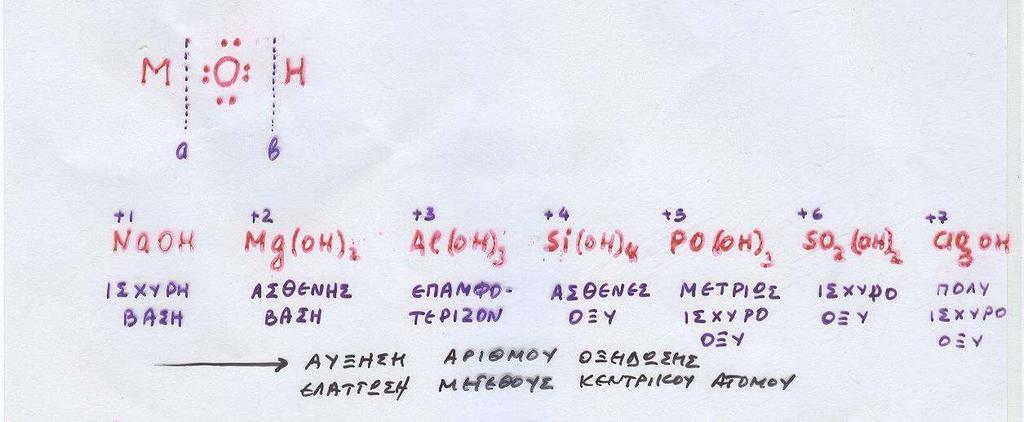 M :Ö: H
a b
+1 +2 +3 +4 +5 +6 +7
NaOH Mg(OH)₂ Al(OH)₃ Si(OH)₄ PO(OH)₃ SO₂(OH)₂ ClO₃OH
ΙΣΧΥΡΗ ΑΣΘΕΝΗΣ ΕΠΑΜΦΟ- ΑΣΘΕΝΕΣ ΜΕΤΡΙΩΣ ΙΣΧΥΡΟ ΠΟΛΥ
ΒΑΣΗ ΒΑΣΗ ΤΕΡΙΖΟΝ ΟΞΥ ΙΣΧΥΡΟ ΟΞΥ ΙΣΧΥΡΟ
ΟΞΥ ΟΞΥ
→ ΑΥΞΗΣΗ ΑΡΙΘΜΟΥ ΟΞΕΙΔΩΣΗΣ
ΕΛΑΤΤΩΣΗ ΜΕΓΕΘΟΥΣ ΚΕΝΤΡΙΚΟΥ ΑΤΟΜΟΥ